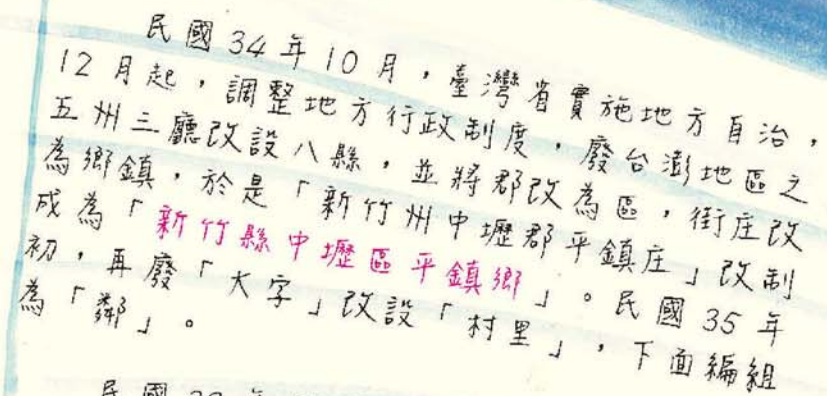 民國34年10月，臺灣省實施地方自治，
12月起，調整地方行政制度，廢台澎地區之
五州三廳改設八縣，並將郡改為區，街庄改
為鄉鎮，於是「新竹州中壢郡平鎮庄」改制
成為「新竹縣中壢區平鎮鄉」。民國35年
初，再廢「大字」改設「村里」，下面編組
為「鄰」。
民國